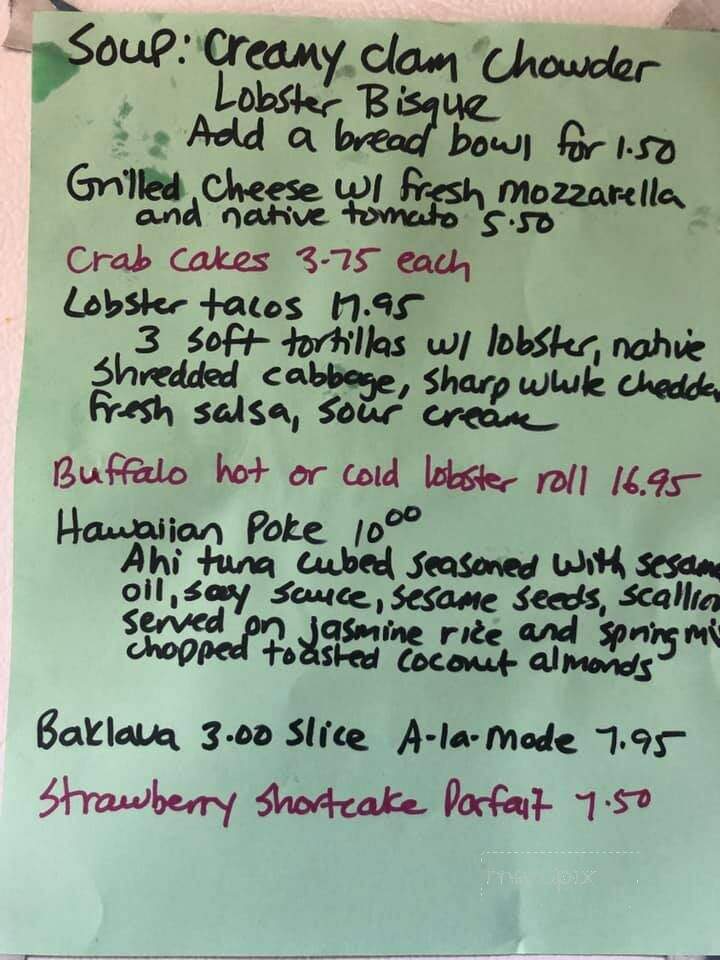 Soup: Creamy clam Chowder
Lobster Bisque
Add a bread bowl for 1.50
Grilled Cheese w/ fresh mozzarella
and native tomato 5.50
Crab Cakes 3.75 each
Lobster tacos 17.95
3 soft tortillas w/ lobster, native
shredded cabbage, sharp white chedda
fresh salsa, sour cream
Buffalo hot or cold lobster roll 16.95
Hawaiian Poke 10⁰⁰
Ahi tuna cubed seasoned with sesame
oil, soy sauce, sesame seeds, scallion
served on jasmine rice and spring mi
chopped toasted coconut almonds
Baklava 3.00 slice A-la-mode 7.95
Strawberry shortcake Parfait 7.50